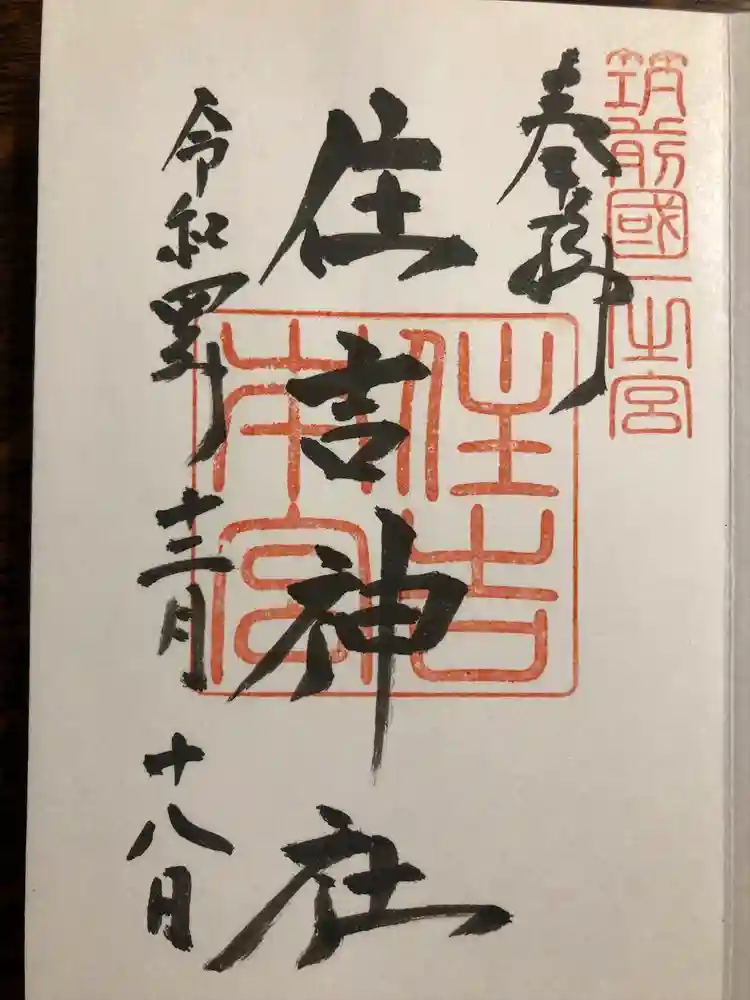 筑前國一之宮
奉拝
住吉神社
住吉
本宮
令和四年十二月十八日